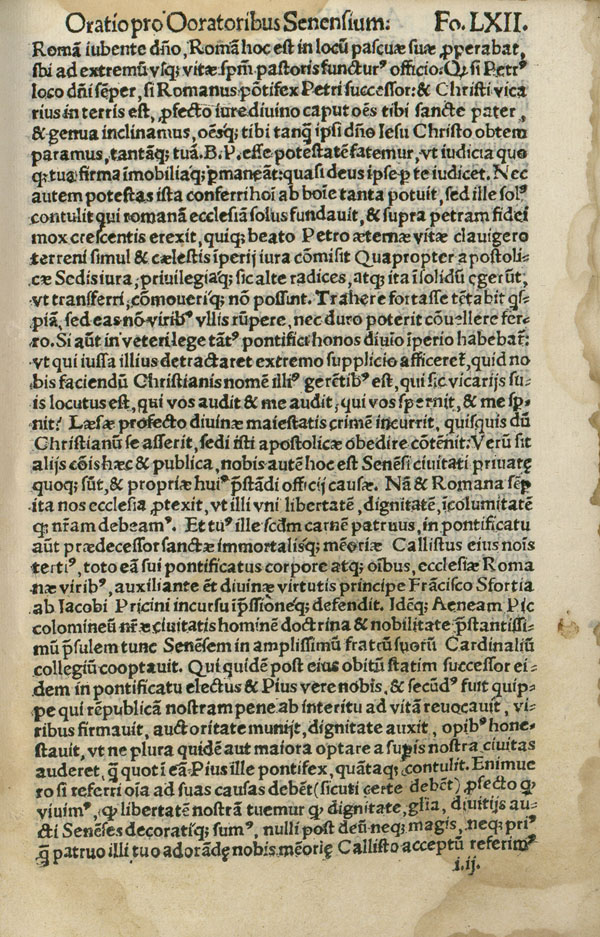 Oratio pro Ooratoribus Senensium: Fo. LXII.
Romā iubente dn̄o, Romā hoc est in locū pascuæ suæ ꝓperabat,
sbi ad extremū vsq; vitæ spm̄ pastoris functurꝰ officio: Q si Petrꝰ
loco dn̄i sēper, si Romanus pōtifex Petri successor: & Christi vica
rius in terris est, ꝓfecto iure diuino caput oēs tibi sancte pater,
& genua inclinamus, oēsq; tibi tanq̄ ipsi dn̄o Iesu Christo obtem
paramus, tantāq; tuā. B. P. esse potestatē fatemur, vt iudicia quo
q; tua firma īmobiliaq; ꝑmaneāt: quasi deus ipse ꝓ te iudicet. Nec
autem potestas ista conferri hoī ab hoīe tanta potuit, sed ille solꝰ
contulit qui romanā ecclesiā solus fundauit, & supra petram fidei
mox crescentis erexit, quiq; beato Petro æternæ vitæ clauigero
terreni simul & cælestis īperij iura cōmisit Quapropter apostoli-
cæ Sedis iura, priuilegiaq; sic alte radices, atq; ita ī solidū egerūt,
vt transferri, cōmoueriq; nō possint. Trahere fortasse tētabit qs-
piā, sed eas nō viribꝰ vllis rūpere, nec duro poterit cōuellere fer-
ro. Si aūt in veteri lege tātꝰ pontifici honos diuīo īperio habebat̄:
vt qui iussa illius detractaret extremo supplicio afficeret̄, quid no
bis faciendū Christianis nomē illiꝰ gerētibꝰ est, qui sic vicarijs su-
is locutus est, qui vos audit & me audit, qui vos spernit, & me sp-
nit? Læsæ profecto diuinæ maiestatis crimē incurrit, quisquis dū
Christianū se asserit, sedi isti apostolicæ obedire cōtēnit: Verū sit
alijs cōis hæc & publica, nobis autē hoc est Senēsi ciuitati priuatę
quoq; sūt, & propriæ huiꝰ p̄stādi officij causæ. Nā & Romana sēp
ita nos ecclesia ꝓtexit, vt illi vni libertatē, dignitatē, īcolumitatē
q; nr̄am debeamꝰ. Et tuꝰ ille scdm carnē patruus, in pontificatu
aūt prædecessor sanctæ immortalisq; mēoriæ Callistus eius nois
tertiꝰ, toto eā sui pontificatus corpore atq; oībus, ecclesiæ Roma
næ viribꝰ, auxiliante ēt diuinæ virtutis principe Frācisco Sfortia
ab Iacobi Pricini incursu īp̄ssiōneq; defendit. Idēq; Aeneam Pic
colomineū nr̄æ ciuitatis hominē doctrina & nobilitate p̄stantissi-
mū p̄sulem tunc Senēsem in amplissimū fratrū suorū Cardinaliū
collegiū cooptauit. Qui quidē post eius obitū statim successor ei-
dem in pontificatu electus & Pius vere nobis, & secūdꝰ fuit quip-
pe qui rēpublicā nostram pene ab interitu ad vitā reuocauit, vi-
ribus firmauit, auctoritate munijt, dignitate auxit, opibꝰ hone-
stauit, vt ne plura quidē aut maiora optare a supis nostra ciuitas
auderet, q̄ quot ī eā Pius ille pontifex, quātaq; contulit. Enimue
ro si referri oīa ad suas causas debēt (sicuti certe debēt) ꝓfecto ꝙ
viuimꝰ, ꝙ libertatē nostrā tuemur ꝙ dignitate, glīa, diuitijs au-
cti Senēses decoratiq; sumꝰ, nulli post deū neq; magis, neq; priꝰ
q̄ patruo illi tuo adorādę nobis mēorię Callisto acceptū referimꝰ
i.ij.